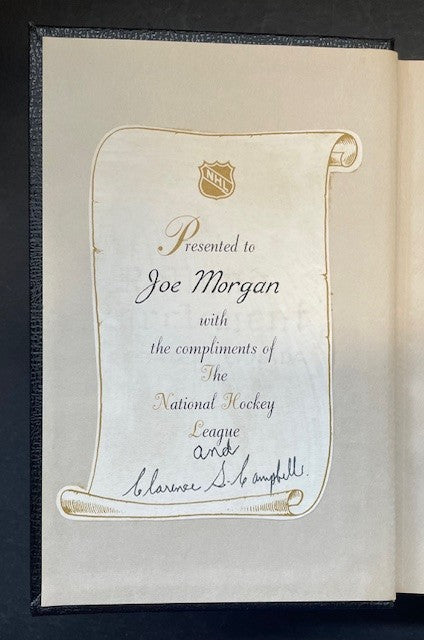 NHL
Presented to
Joe Morgan
with
the compliments of
The
National Hockey
League
and
Clarence S. Campbell.